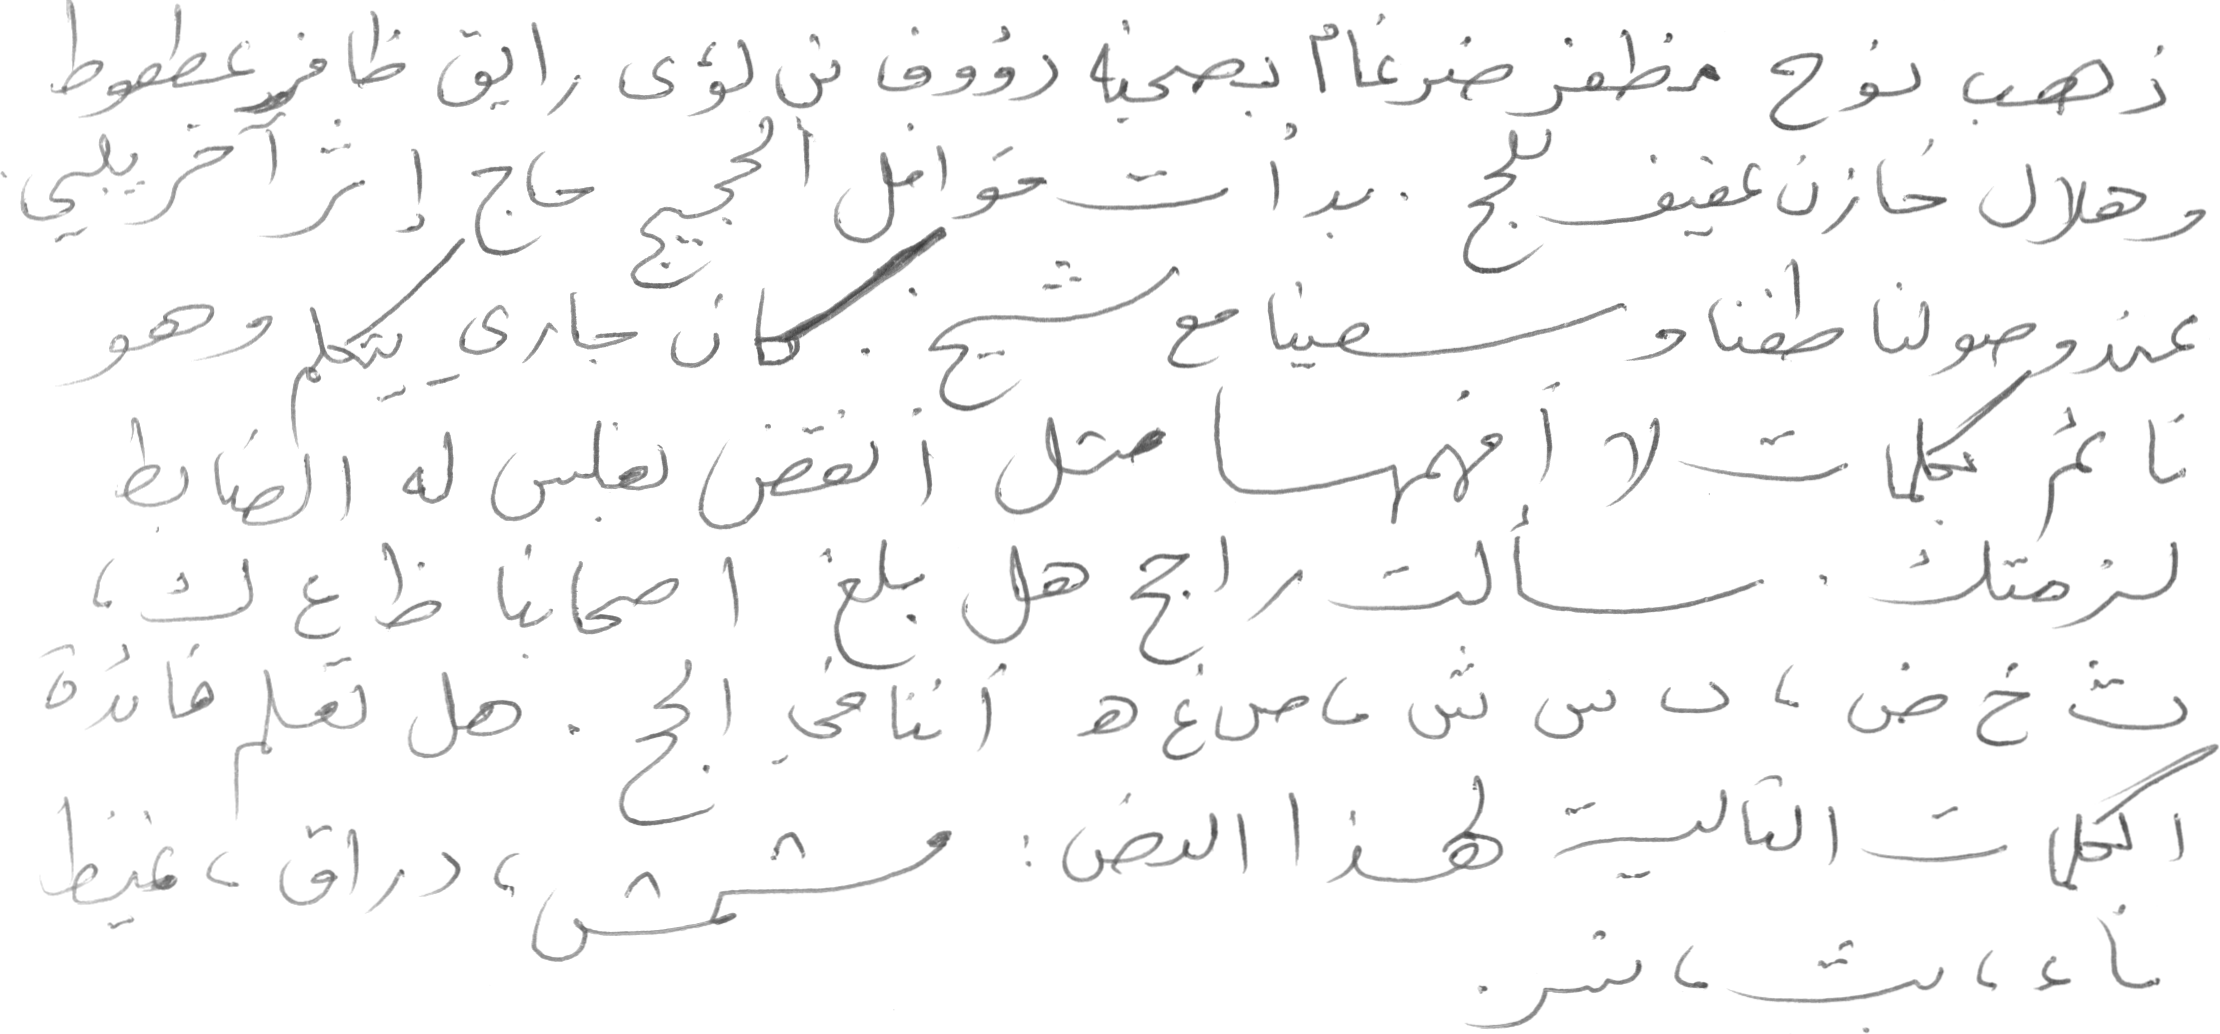 ذهب نوح مظفر ضرغام بصحبة رؤوف بن لؤي رايق ظافر عطعوط
وهلال خازن عفيف للحج . بدأت حوافل الحجيج حاج إثر آخر يلبي .
عند وصولنا طفنا وسعينا مع شيخ . كان جاري يتكلم وهو
نائم بكلمات لا أفهمها مثل أنقض لعلس له الضابط
لزمتك . سألت راجح هل بلغ اصحابنا ظ ع ك ،
ث خ ض ، ب س ش ، ص غ ه أننا في الحج . هل تعلم فائدة
الكلمات التالية لهذا النص : مشمش ، دراق ، غيظ
نأء ، بث ، نسر .